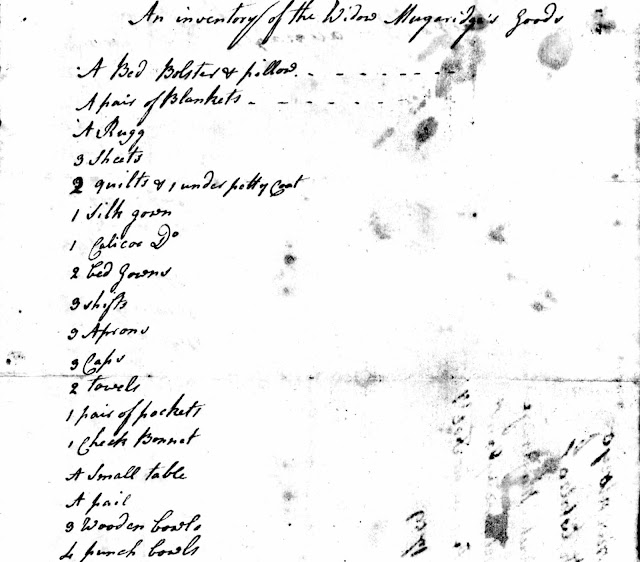 An inventory of the Widow Mugaridge's Goods
A Bed Bolster & pillow
A pair of Blankets
A Rugg
3 Sheets
2 quilts & 1 under petty Coat
1 Silk gown
1 Calicoe Do
2 bed Gowns
3 shifts
3 Aprons
3 Caps
2 towels
1 pair of pockets
1 Check Bonnat
A Small table
A pail
3 Wooden bowls
4 punch bowls